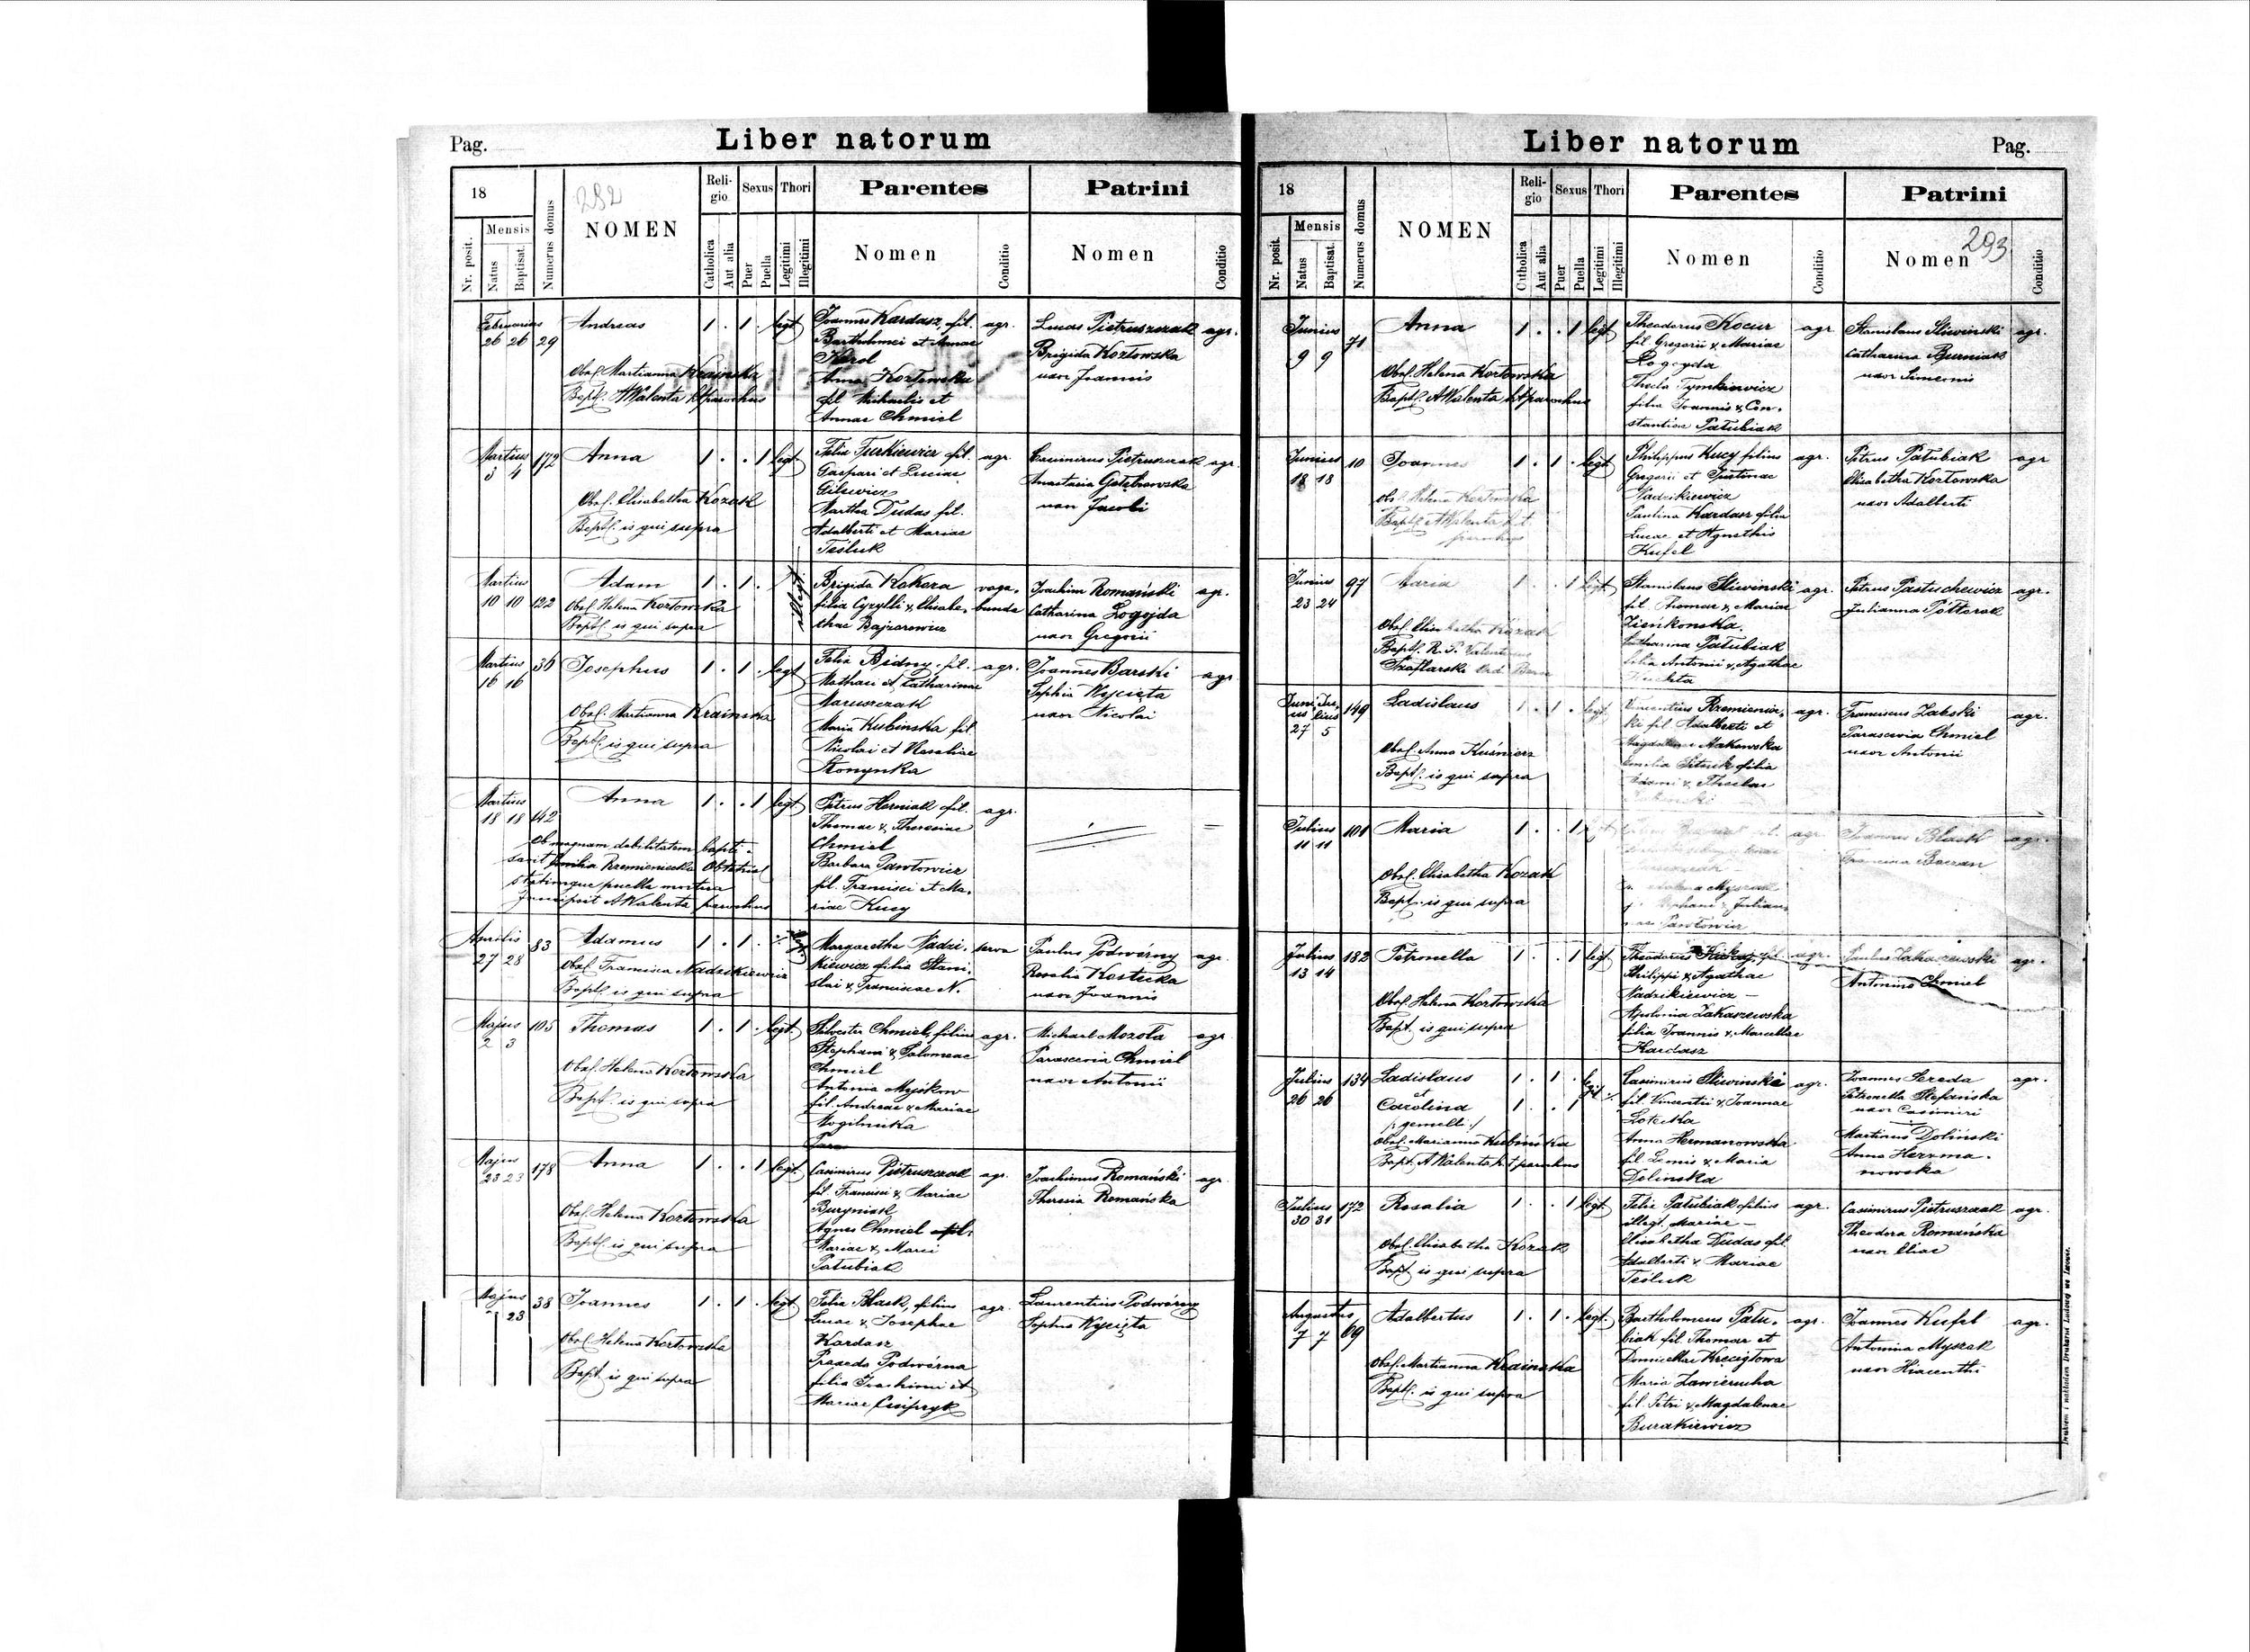 Pag.
Liber natorum
18
Numerus domus
282
NOMEN
Religio
Sexus
Thori
Parentes
Patrini
Nr. posit.
Mensis
Natus
Baptisat.
Catholica
Aut alia
Puer
Puella
Legitimi
Illegitimi
Nomen
Conditio
Nomen
Conditio
Februarius
26 26 29
Andreas
1 . 1 . legt
Obst. Martianna Krainska
Bapt. A Walenta Lt parochus
Joannes Kardasz fil.
Bartholomei et Annae
Karol
Anna Kozłowska
fil Michaelis et
Annae Chmiel
agr.
Lucas Pietruszczak
Brigida Kozłowska
uxor Joannis
agr.
Martius
3 4 172
Anna
1 . . 1 legt
Obst. Elisabetha Kozak
Bapt. is qui supra
Felix Turkiewicz fil.
Gaspari et Luciae
Gilewicz
Martha Dudas fil.
Adalberti et Mariae
Teśluk
agr.
Casimirus Pietruszczak
Anastasia Gołębiowska
uxor Jacobi
agr.
Martius
10 10 122
Adam
1 . 1 .
illegit
Obst. Helena Kozłowska
Bapt. is qui supra
Brigida Kokoza
filia Cyrylli & Elisabe-
thae Bajzarowicz
vaga-
bunda
Joachim Romański
Catharina Łogojda
uxor Gregorii
agr.
Martius
16 16
36
Josephus
1 . 1 . legt
Obst. Martianna Krainska
Bapt. is qui supra
Felix Bidny fil.
Mathaei et Catharinae
Maruszczak
Maria Kubinska fil
Nicolai et Rosaliae
Konynka
agr.
Joannes Barski
Sophia Wycięta
uxor Nicolai
agr
Martius
18 18 142
Anna
1 . . 1 legt
Ob magnam debilitatem bapti-
savit Emilia Rzemieniecka Obstetrix
statimque puella mortua
Inscripsit A Walenta parochus
Petrus Herniak fil.
Thomae & Theresiae
Chmiel
Barbara Pawłowicz
fil. Francisci et Ma-
riae Kucy
agr.
Aprilis
27 28
83
Adamus
1 . 1 .
Obst. Francisca Nadzikiewicz
Bapt. is qui supra
Margaretha Nadzi-
kiewicz filia Stani-
slai & Franciscae N.
serva
Paulus Podwórny
Rosalia Kostecka
uxor Joannis
agr
Majus
2 3
105
Thomas
1 . 1 . legt
Obst. Helena Kozłowska
Bapt. is qui supra
Silvester Chmiel, filius
Stephani & Salomeae
Chmiel
Antonia Myśków
fil. Andreae & Mariae
Mogilnicka
agr.
Michael Mozola
Parascevia Chmiel
uxor Antonii
agr
Majus
23 23
178
Anna
1 . . 1 legt
Obst. Helena Kozłowska
Bapt. is qui supra
Casimirus Pietruszczak
fil. Francisci & Mariae
Buryniak
Agnes Chmiel fil.
Mariae & Marci
Patubiak
agr.
Joachimus Romański
Theresia Romańska
agr
Majus
23
38
Joannes
1 . 1 . legt
Obst. Helena Kozłowska
Bapt. is qui supra
Felix Blask, filius
Lucae & Josephae
Kardasz
Praxeda Podwórna
filia Joachimi et
Mariae
agr.
Laurentius Podwórny
Sophia Wycięta
Liber natorum
Pag.
18
Numerus domus
NOMEN
Religio
Sexus
Thori
Parentes
Patrini
Nr. posit.
Mensis
Natus
Baptisat.
Catholica
Aut alia
Puer
Puella
Legitimi
Illegitimi
Nomen
Conditio
Nomen
293
Conditio
Junius
9 9
71
Anna
1 . . 1 legt
Obst. Helena Kozłowska
Bapt. A Walenta Lt parochus
Theodorus Kocur
fil. Gregorii & Mariae
Łogojda
Thecla Tymkiewicz
filia Joannis & Con-
stantiae Patubiak
agr
Stanislaus Sliwinski
Catharina Burniak
uxor Simeonis
agr.
Junius
18 18
10
Joannes
1 . 1 . legt
Obst. Helena Kozłowska
Bapt. A Walenta Lt
parochus
Philippus Kucy filius
Gregorii et Justinae
Nadzikiewicz
Paulina Kardasz filia
Lucae et Agnethis
Kufel
agr.
Petrus Patubiak
Elisabetha Kozłowska
uxor Adalberti
agr
Junius
23 24
97
Maria
1 . . 1 legt
Obst. Elisabetha Kozak
Bapt. R. P. Valentinus
Szaflarski Ord. Bern
Stanislaus Sliwinski
fil. Thomae & Mariae
Zienkowska.
Catharina Patubiak
filia Antonii & Agathae
agr.
Petrus Pastuchewicz
Julianna Półtorak
agr.
Junius Julius
27 5
149
Ladislaus
1 . 1 . legt
Obst. Anna Kuśnierz
Bapt. is qui supra
Vincentius Rzemienie-
cki fil Adalberti et
Magdalenae Makowska
Emilia Pituch filia
Adami & Theclae
agr.
Franciscus Zabski
Parascevia Chmiel
uxor Antonii
agr.
Julius
11 11
101
Maria
1 . . 1
Obst. Elisabetha Kozak
Bapt. is qui supra
Myszak
Stephani & Julian-
nae Pawłowicz
agr.
Joannes Blask
Francisca Baczan
agr.
Julius
13 14
182
Petronella
1 . . 1 legt
Obst. Helena Kozłowska
Bapt. is qui supra
Theodorus Kikcy, fil.
Philippi & Agathae
Nadzikiewicz
Apolonia Zakaszewska
filia Joannis & Marcellae
Kardasz
agr.
Paulus Zakaszewski
Antonina Chmiel
agr.
Julius
26 26
134
Ladislaus
et
Carolina
/: gemelli :/
1 . 1 . legt
1 . . 1
Obst. Marianna Kubinska
Bapt. A Walenta Lt parochus
Casimirus Sliwinski
fil. Vincentii & Joannae
Łotecka
Anna Hermanowska
fil. Leonis & Maria
Dolinska
agr.
Joannes Sereda
Petronella Stefańska
uxor Casimiri
Martinus Doliński
Anna Herma-
nowska
agr.
Julius
30 31
172
Rosalia
1 . . 1 legt
Obst. Elisabetha Kozak
Bapt. is qui supra
Felix Patubiak filius
illegt. Mariae
Elisabetha Dudas fil
Adalberti & Mariae
Teśluk
agr.
Casimirus Pietruszczak
Theodora Romańska
uxor Eliae
agr.
Augustus
7 7 69
Adalbertus
1 . 1 . legt.
Obst. Martianna Krainska
Bapt. is qui supra
Bartholomeus Patu-
biak fil. Thomae et
Domicellae Krecigłowa
Maria Zawierucha
fil. Petri & Magdalenae
Burakiewicz
agr.
Joannes Kufel
Antonina Myszak
uxor Hiacenthi
agr.